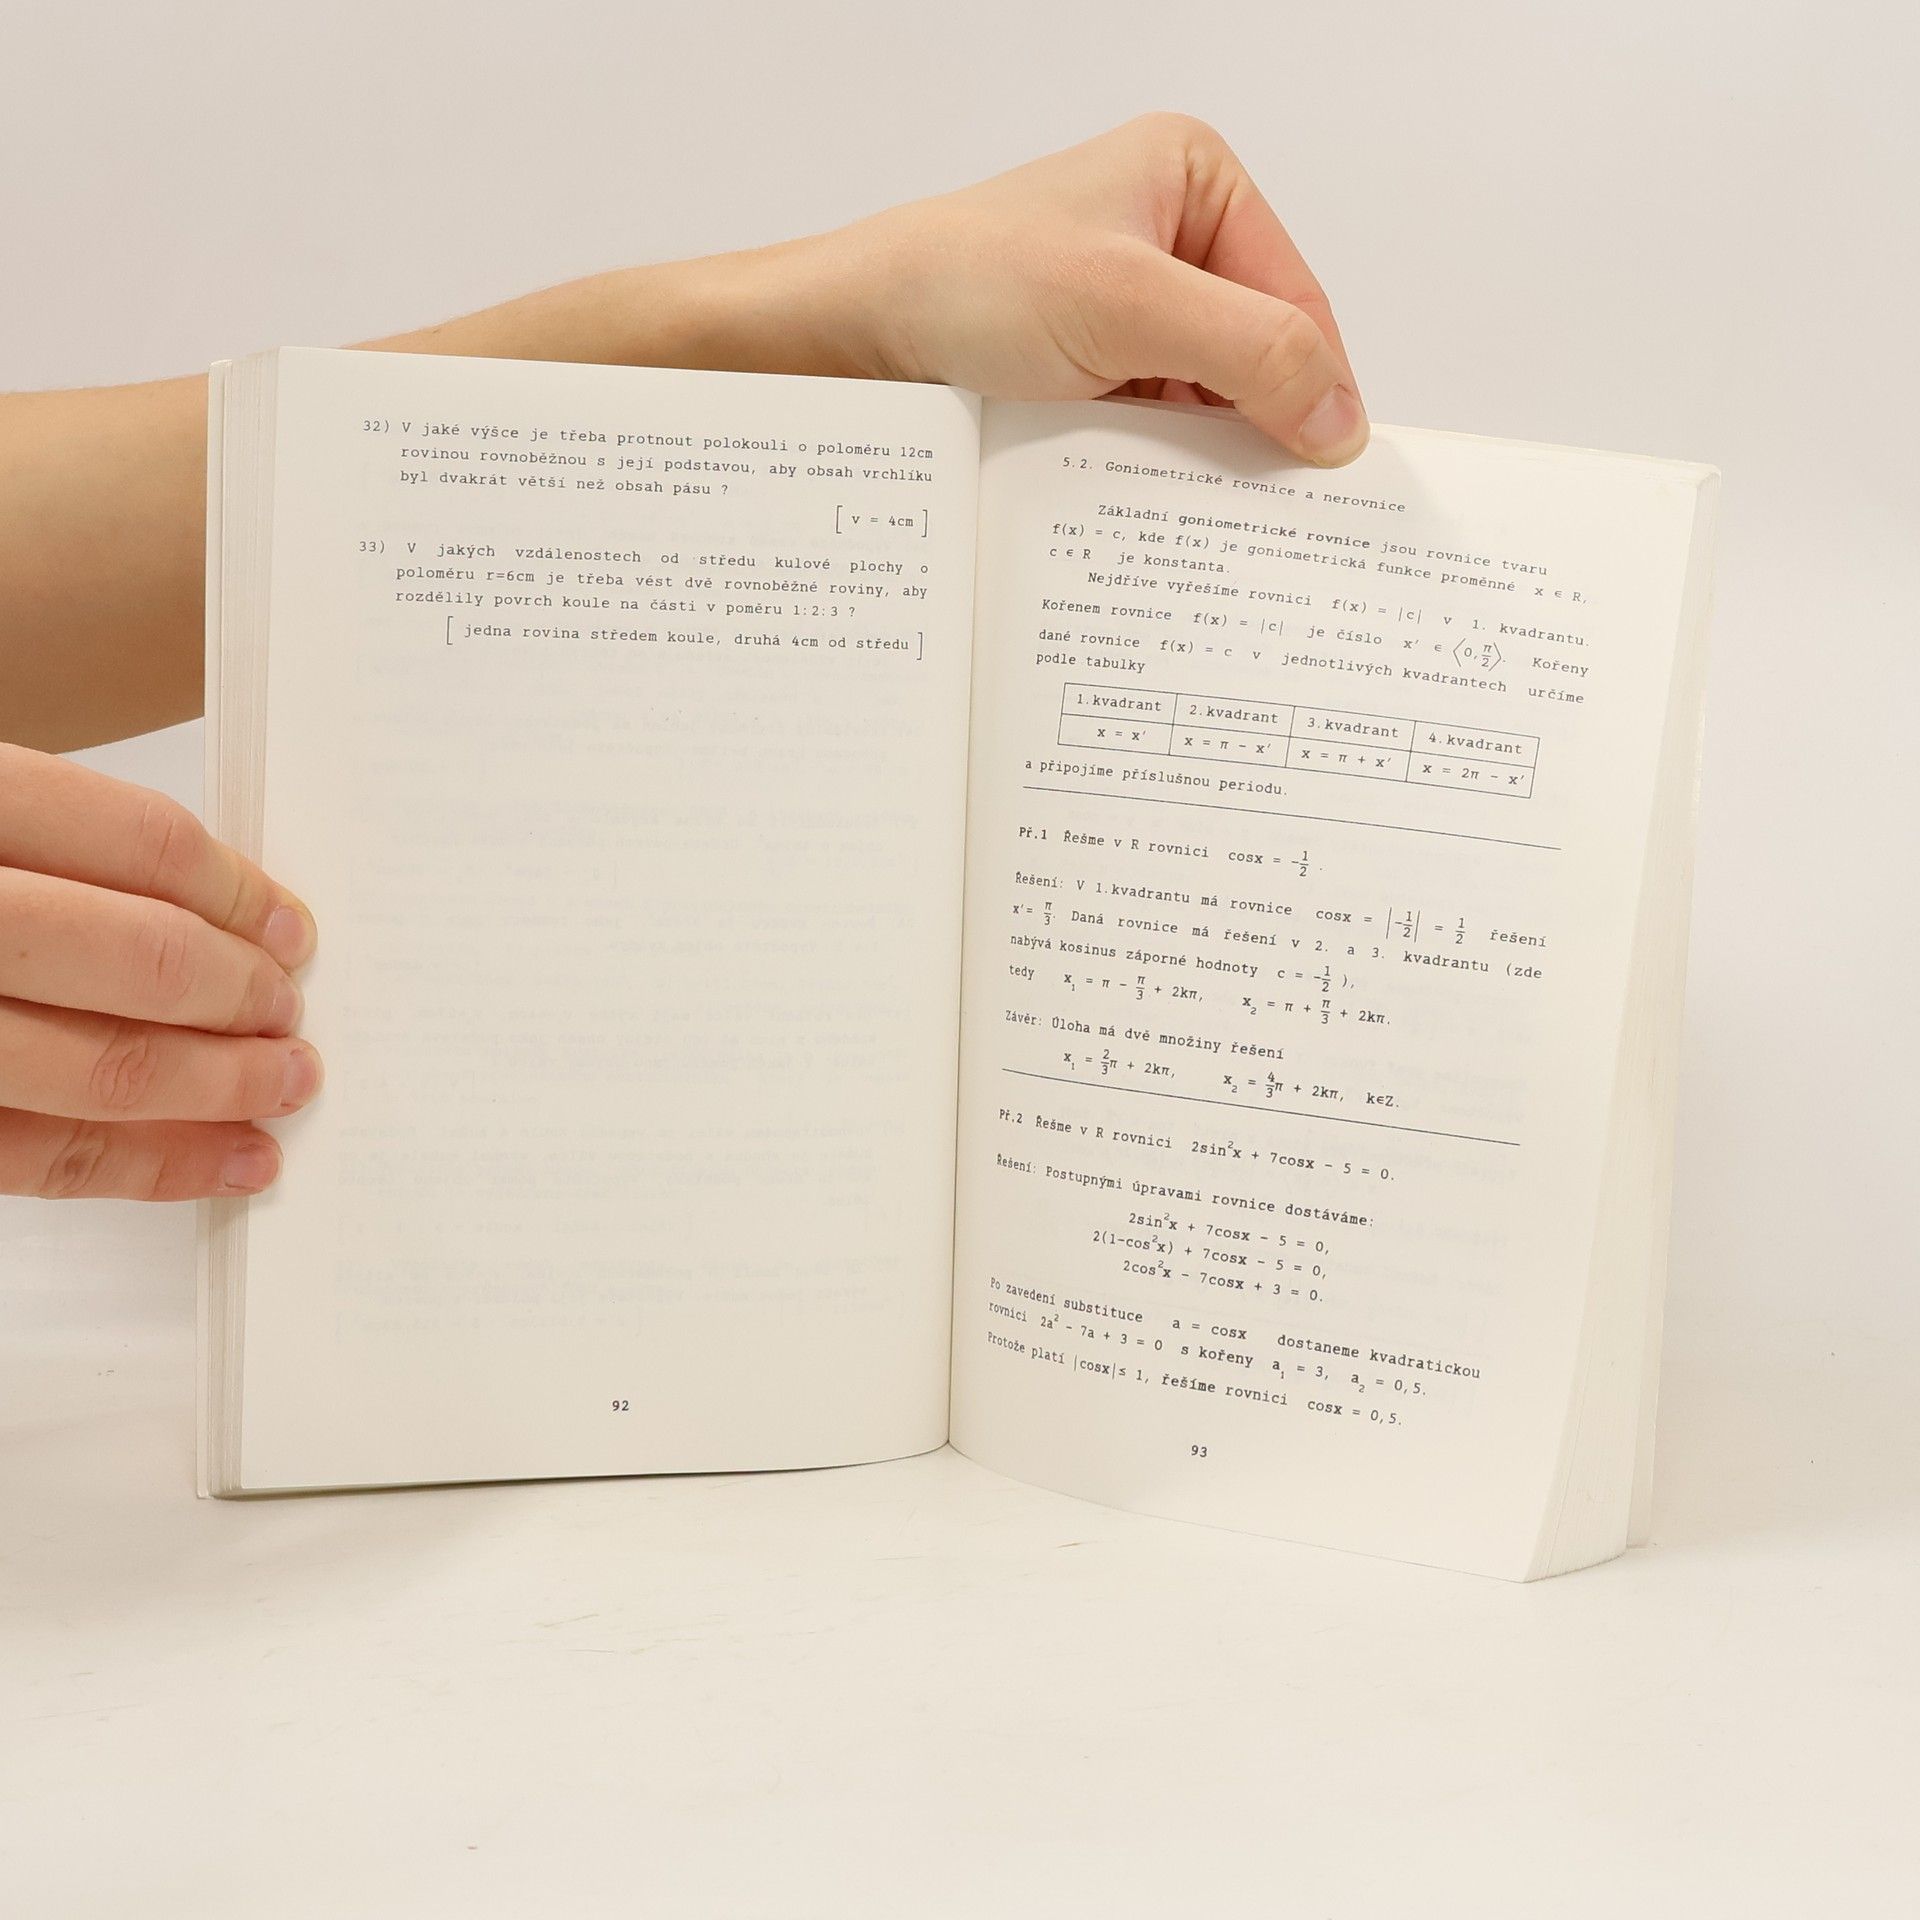 32) V jaké výšce je třeba protnout polokouli o poloměru 12cm
rovinou rovnoběžnou s její podstavou, aby obsah vrchlíku
byl dvakrát větší než obsah pásu ?
[ v = 4cm ]
33) V jakých vzdálenostech od středu kulové plochy o
poloměru r=6cm je třeba vést dvě rovnoběžné roviny, aby
rozdělily povrch koule na části v poměru 1:2:3 ?
[ jedna rovina středem koule, druhá 4cm od středu ]
92
5.2. Goniometrické rovnice a nerovnice
Základní goniometrické rovnice jsou rovnice tvaru
f(x) = c, kde f(x) je goniometrická funkce proměnné x ∈ R,
c ∈ R je konstanta.
Nejdříve vyřešíme rovnici f(x) = |c| v 1. kvadrantu.
Kořenem rovnice f(x) = |c| je číslo x' ∈ ⟨0,π/2⟩. Kořeny
dané rovnice f(x) = c v jednotlivých kvadrantech určíme
podle tabulky
1.kvadrant 2.kvadrant 3.kvadrant 4.kvadrant
x = x' x = π - x' x = π + x' x = 2π - x'
a připojíme příslušnou periodu.
Př.1 Řešme v R rovnici cosx = -1/2 .
Řešení: V 1.kvadrantu má rovnice cosx = |-1/2| = 1/2 řešení
x'= π/3. Daná rovnice má řešení v 2. a 3. kvadrantu (zde
nabývá kosinus záporné hodnoty c = -1/2 ),
tedy x₁ = π - π/3 + 2kπ, x₂ = π + π/3 + 2kπ.
Závěr: Úloha má dvě množiny řešení
x₁ = 2/3π + 2kπ, x₂ = 4/3π + 2kπ, k∈Z.
Př.2 Řešme v R rovnici 2sin²x + 7cosx - 5 = 0.
Řešení: Postupnými úpravami rovnice dostáváme:
2sin²x + 7cosx - 5 = 0,
2(1-cos²x) + 7cosx - 5 = 0,
2cos²x - 7cosx + 3 = 0.
Po zavedení substituce a = cosx dostaneme kvadratickou
rovnici 2a² - 7a + 3 = 0 s kořeny a₁ = 3, a₂ = 0,5.
Protože platí |cosx|≤ 1, řešíme rovnici cosx = 0,5.
93